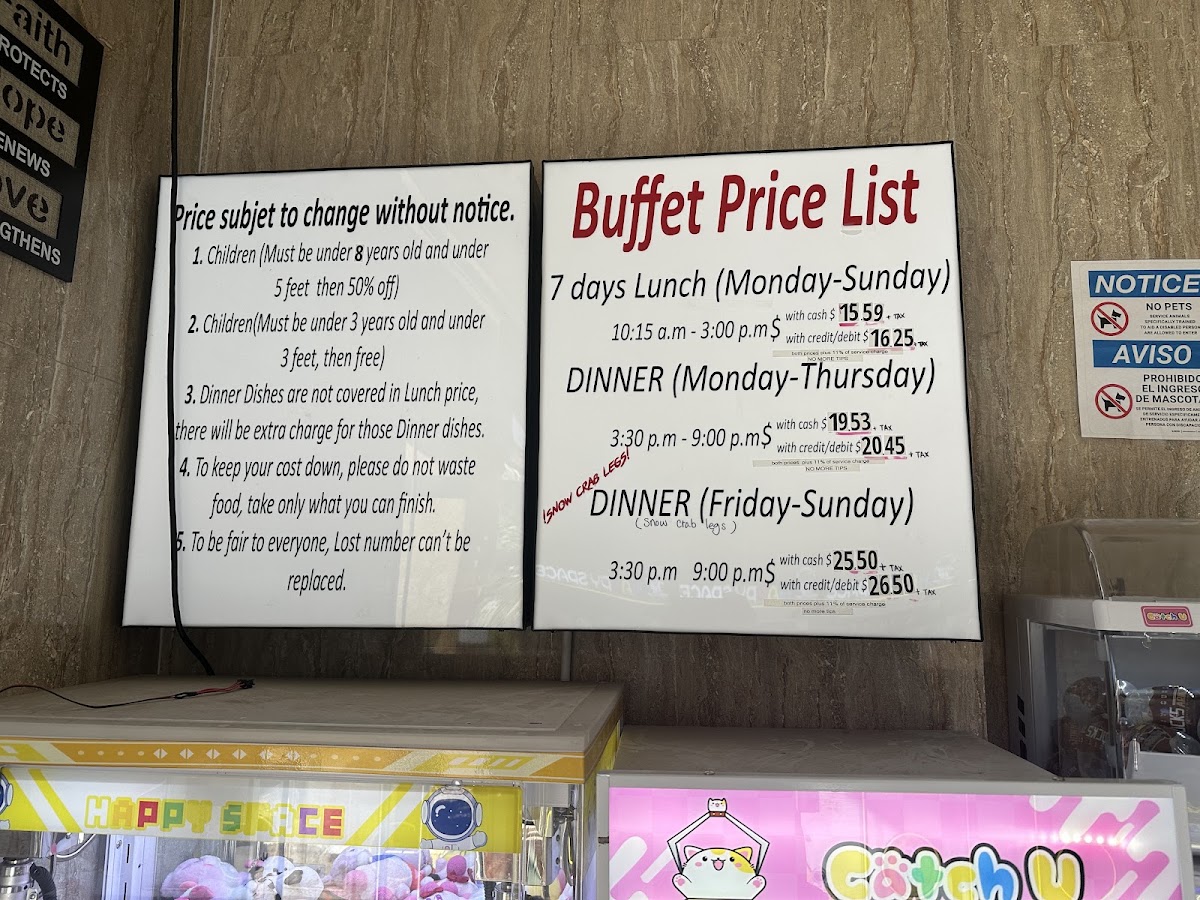 Faith
PROTECTS
Hope
RENEWS
Love
STRENGTHENS
Price subjet to change without notice.
1. Children (Must be under 8 years old and under
5 feet then 50% off)
2. Children(Must be under 3 years old and under
3 feet, then free)
3. Dinner Dishes are not covered in Lunch price,
there will be extra charge for those Dinner dishes.
4. To keep your cost down, please do not waste
food, take only what you can finish.
5. To be fair to everyone, Lost number can't be
replaced.
Buffet Price List
7 days Lunch (Monday-Sunday)
10:15 a.m - 3:00 p.m $ with cash $ 15.59 + TAX
with credit/debit $ 16.25 + TAX
both prices plus 11% of service charge
NO MORE TIPS
DINNER (Monday-Thursday)
3:30 p.m - 9:00 p.m $ with cash $ 19.53 + TAX
with credit/debit $ 20.45 + TAX
both prices plus 11% of service charge
NO MORE TIPS
!SNOW CRAB LEGS!
DINNER (Friday-Sunday)
(Snow crab legs)
3:30 p.m 9:00 p.m $ with cash $ 25.50 + TAX
with credit/debit $ 26.50 + TAX
both prices plus 11% of service charge
no more tips
NOTICE
NO PETS
SERVICE ANIMALS
SPECIFICALLY TRAINED
TO AID A DISABLED PERSON
ARE ALLOWED TO ENTER
AVISO
PROHIBIDO
EL INGRESO
DE MASCOTA
Catch U
HAPPY SPACE
Catch U